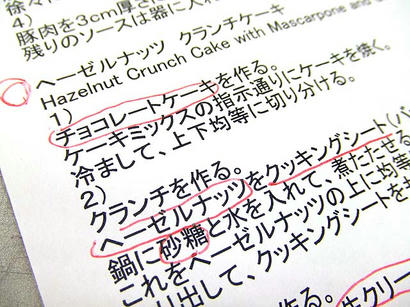 徐々に
4)
豚肉を3cm厚さに
残りのソースは器に入れ
ヘーゼルナッツ クランチケーキ
Hazelnut Crunch Cake with Mascarpone and
1)
チョコレートケーキを作る。
ケーキミックスの指示通りにケーキを焼く。
冷まして、上下均等に切り分ける。
2)
クランチを作る。
ヘーゼルナッツをクッキングシート(バ
鍋に砂糖と水を入れて、煮たたせる
これをヘーゼルナッツの上に均等
り出して、クッキングシートを
る。
生クリー